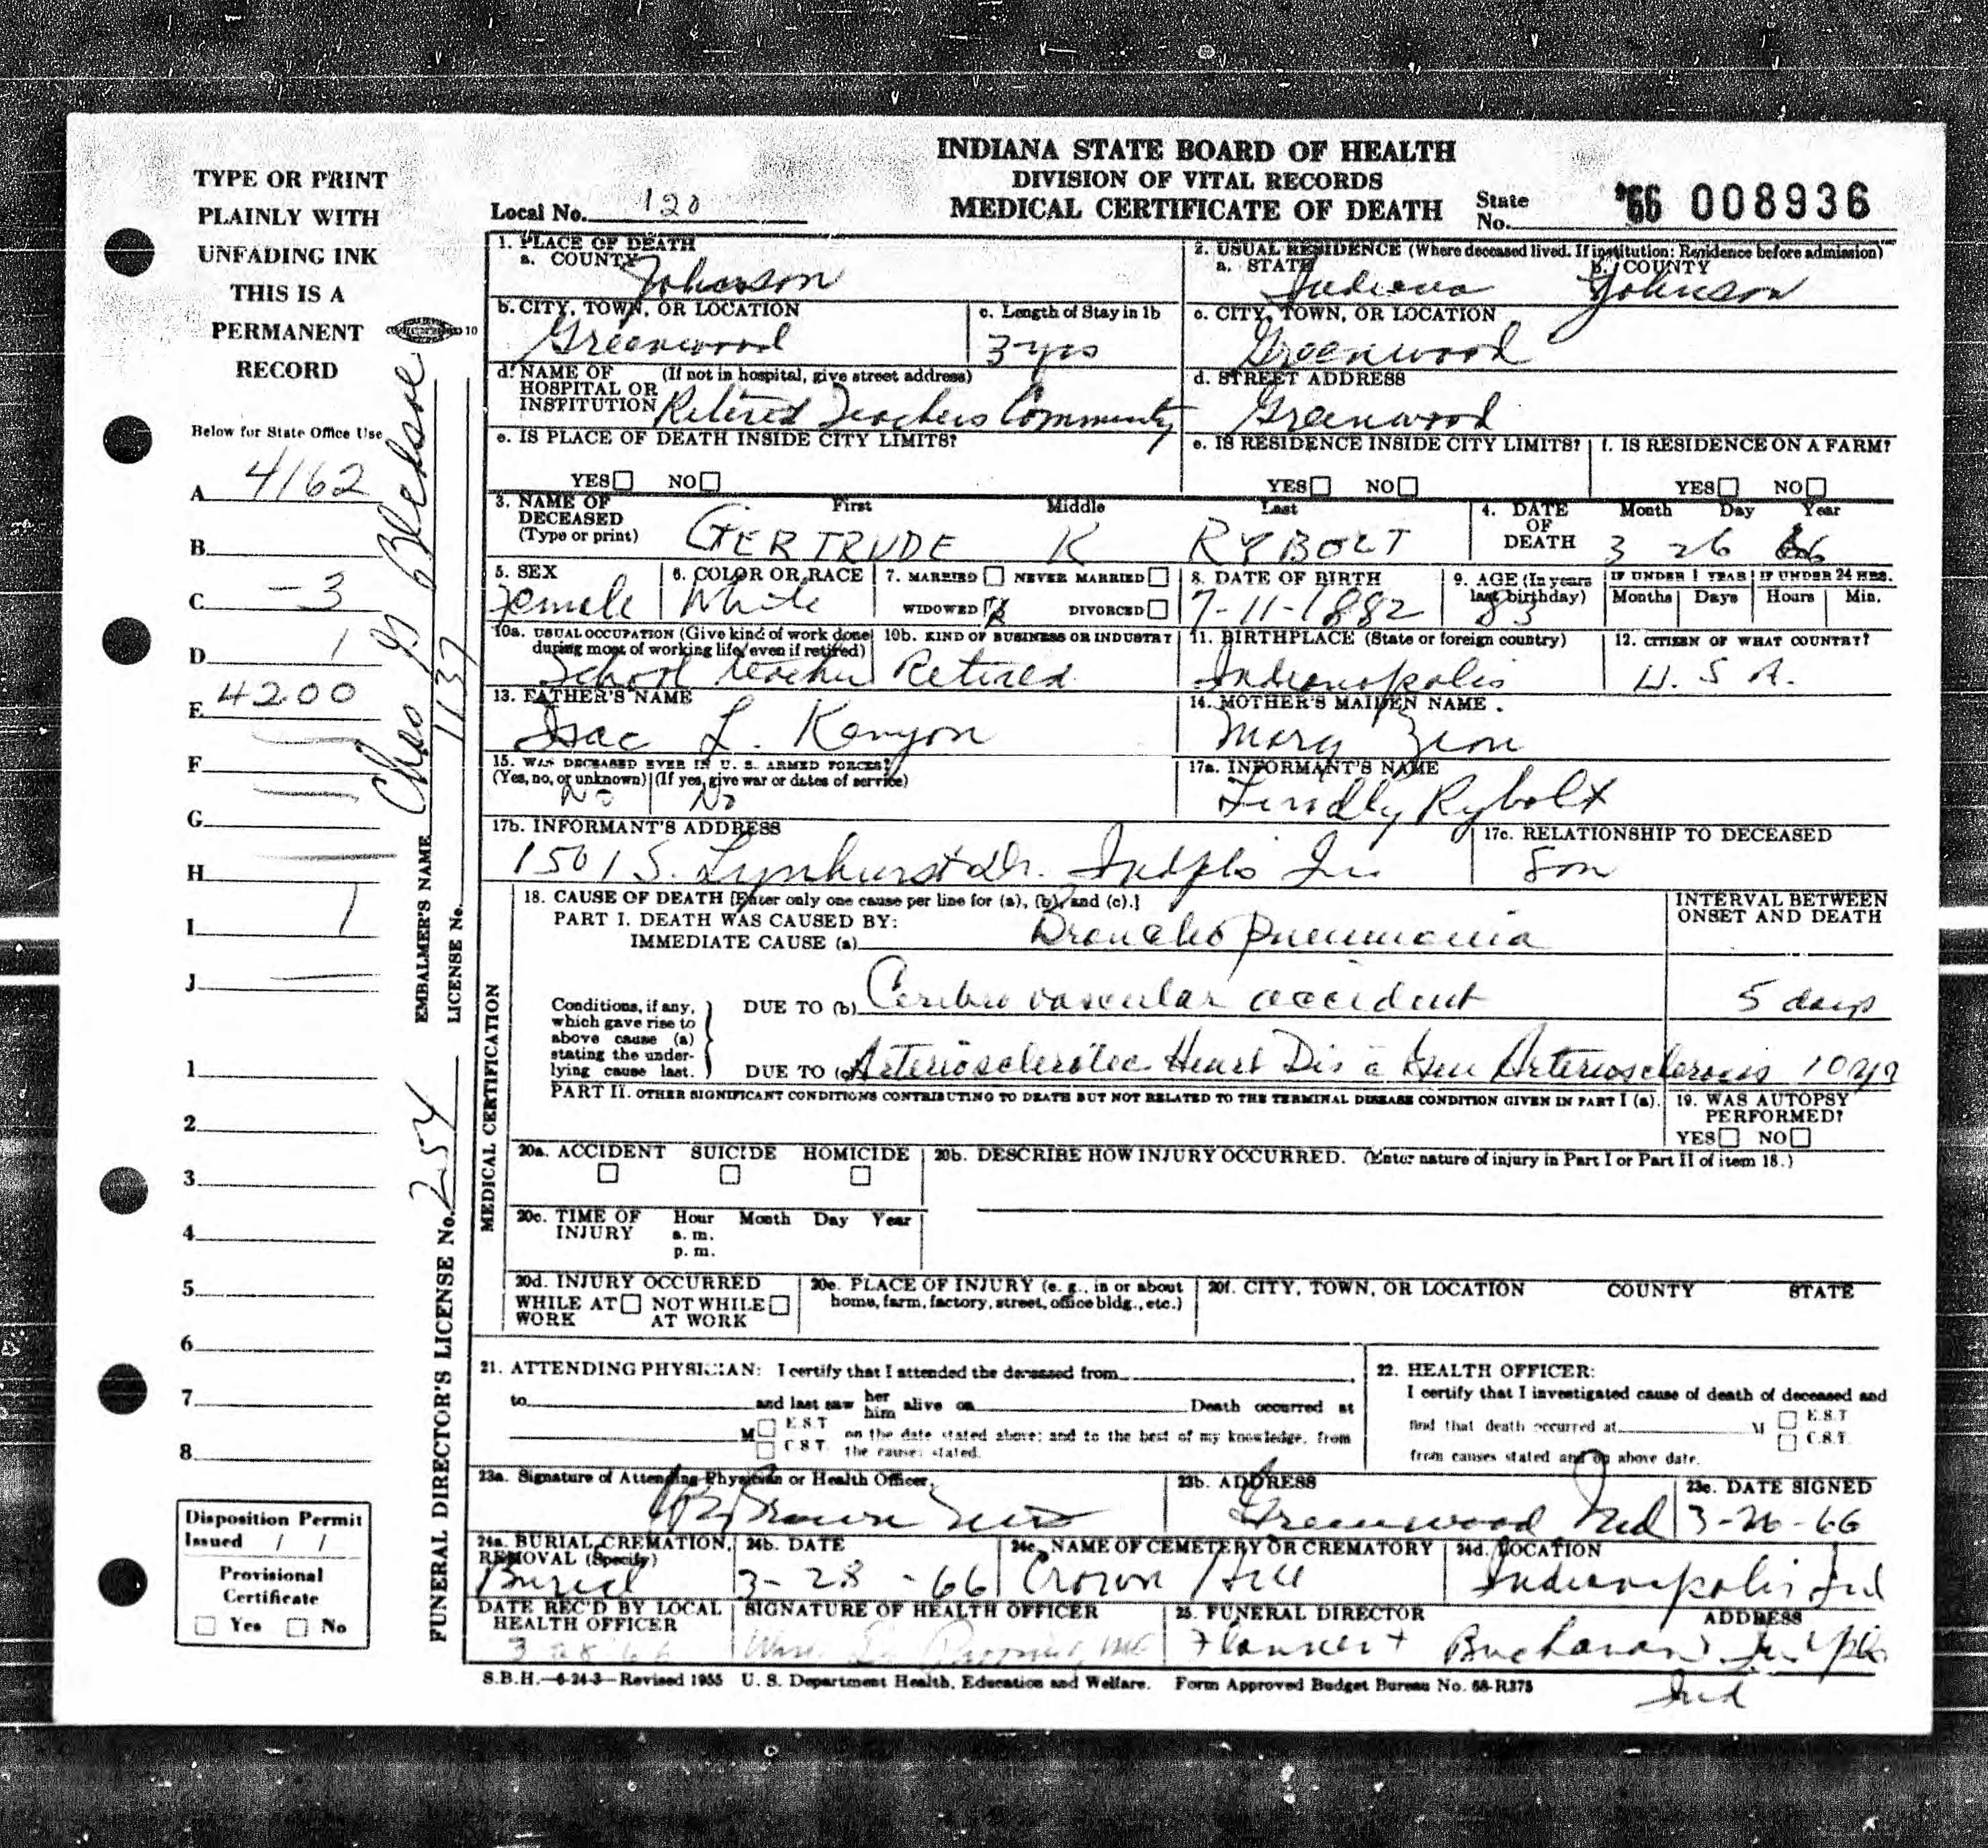 INDIANA STATE BOARD OF HEALTH
DIVISION OF VITAL RECORDS
MEDICAL CERTIFICATE OF DEATH
Local No. 120
State No. '66 008936
TYPE OR PRINT
PLAINLY WITH
UNFADING INK
THIS IS A
PERMANENT
RECORD
10
Below for State Office Use
A 4162
B
C -3
D 1
E 4200
F
G
H
I 1
J
1
2
3
4
5
6
7
8
Disposition Permit
Issued / /
Provisional
Certificate
Yes No
EMBALMER'S NAME Chas G Bledsoe
LICENSE No. 1137
FUNERAL DIRECTOR'S LICENSE No. 254
1. PLACE OF DEATH
a. COUNTY Johnson
2. USUAL RESIDENCE (Where deceased lived. If institution: Residence before admission)
a. STATE Indiana b. COUNTY Johnson
b. CITY, TOWN, OR LOCATION Greenwood
c. Length of Stay in 1b 3 yrs
c. CITY, TOWN, OR LOCATION Greenwood
d. NAME OF HOSPITAL OR INSTITUTION (If not in hospital, give street address) Retired Teachers Community
d. STREET ADDRESS Greenwood
e. IS PLACE OF DEATH INSIDE CITY LIMITS?
YES NO
e. IS RESIDENCE INSIDE CITY LIMITS?
YES NO
f. IS RESIDENCE ON A FARM?
YES NO
3. NAME OF DECEASED (Type or print) First Middle Last
GERTRUDE K RYBOLT
4. DATE OF DEATH Month Day Year
3 26 66
5. SEX Female
6. COLOR OR RACE White
7. MARRIED NEVER MARRIED
WIDOWED X DIVORCED
8. DATE OF BIRTH 7-11-1882
9. AGE (In years last birthday) 83
IF UNDER 1 YEAR Months Days
IF UNDER 24 HRS. Hours Min.
10a. USUAL OCCUPATION (Give kind of work done during most of working life, even if retired) School teacher
10b. KIND OF BUSINESS OR INDUSTRY Retired
11. BIRTHPLACE (State or foreign country) Indianapolis
12. CITIZEN OF WHAT COUNTRY? U.S.A.
13. FATHER'S NAME Isac L. Kenyon
14. MOTHER'S MAIDEN NAME Mary Zion
15. WAS DECEASED EVER IN U. S. ARMED FORCES?
(Yes, no, or unknown) (If yes, give war or dates of service)
No No
17a. INFORMANT'S NAME Lindly Rybolt
17b. INFORMANT'S ADDRESS 1501 S. Lynhurst Dr. Indpls In
17c. RELATIONSHIP TO DECEASED Son
MEDICAL CERTIFICATION
18. CAUSE OF DEATH [Enter only one cause per line for (a), (b), and (c).]
INTERVAL BETWEEN ONSET AND DEATH
PART I. DEATH WAS CAUSED BY:
IMMEDIATE CAUSE (a) Broncho pneumonia
Conditions, if any, which gave rise to above cause (a) stating the underlying cause last.
DUE TO (b) Cerebro vascular accident 5 days
DUE TO (c) Arteriosclerotic Heart Dis c Gen Arteriosclerosis 10 yr
PART II. OTHER SIGNIFICANT CONDITIONS CONTRIBUTING TO DEATH BUT NOT RELATED TO THE TERMINAL DISEASE CONDITION GIVEN IN PART I (a).
19. WAS AUTOPSY PERFORMED?
YES NO
20a. ACCIDENT SUICIDE HOMICIDE
20b. DESCRIBE HOW INJURY OCCURRED. (Enter nature of injury in Part I or Part II of item 18.)
20c. TIME OF INJURY Hour Month Day Year
a. m.
p. m.
20d. INJURY OCCURRED
WHILE AT WORK NOT WHILE AT WORK
20e. PLACE OF INJURY (e. g., in or about home, farm, factory, street, office bldg., etc.)
20f. CITY, TOWN, OR LOCATION COUNTY STATE
21. ATTENDING PHYSICIAN: I certify that I attended the deceased from
to and last saw her him alive on Death occurred at
M E.S.T. C.S.T. on the date stated above; and to the best of my knowledge, from the causes stated.
22. HEALTH OFFICER:
I certify that I investigated cause of death of deceased and
find that death occurred at M E.S.T. C.S.T.
from causes stated and on above date.
23a. Signature of Attending Physician or Health Officer.
Brown
23b. ADDRESS Greenwood Ind
23c. DATE SIGNED 3-26-66
24a. BURIAL, CREMATION, REMOVAL (Specify) Burial
24b. DATE 3-28-66
24c. NAME OF CEMETERY OR CREMATORY Crown Hill
24d. LOCATION Indianapolis Ind
DATE REC'D BY LOCAL HEALTH OFFICER 3 28 66
SIGNATURE OF HEALTH OFFICER
25. FUNERAL DIRECTOR ADDRESS
Flanner + Buchanan Indpls
Ind
S.B.H.—6-24-3—Revised 1955 U. S. Department Health, Education and Welfare. Form Approved Budget Bureau No. 68-R375